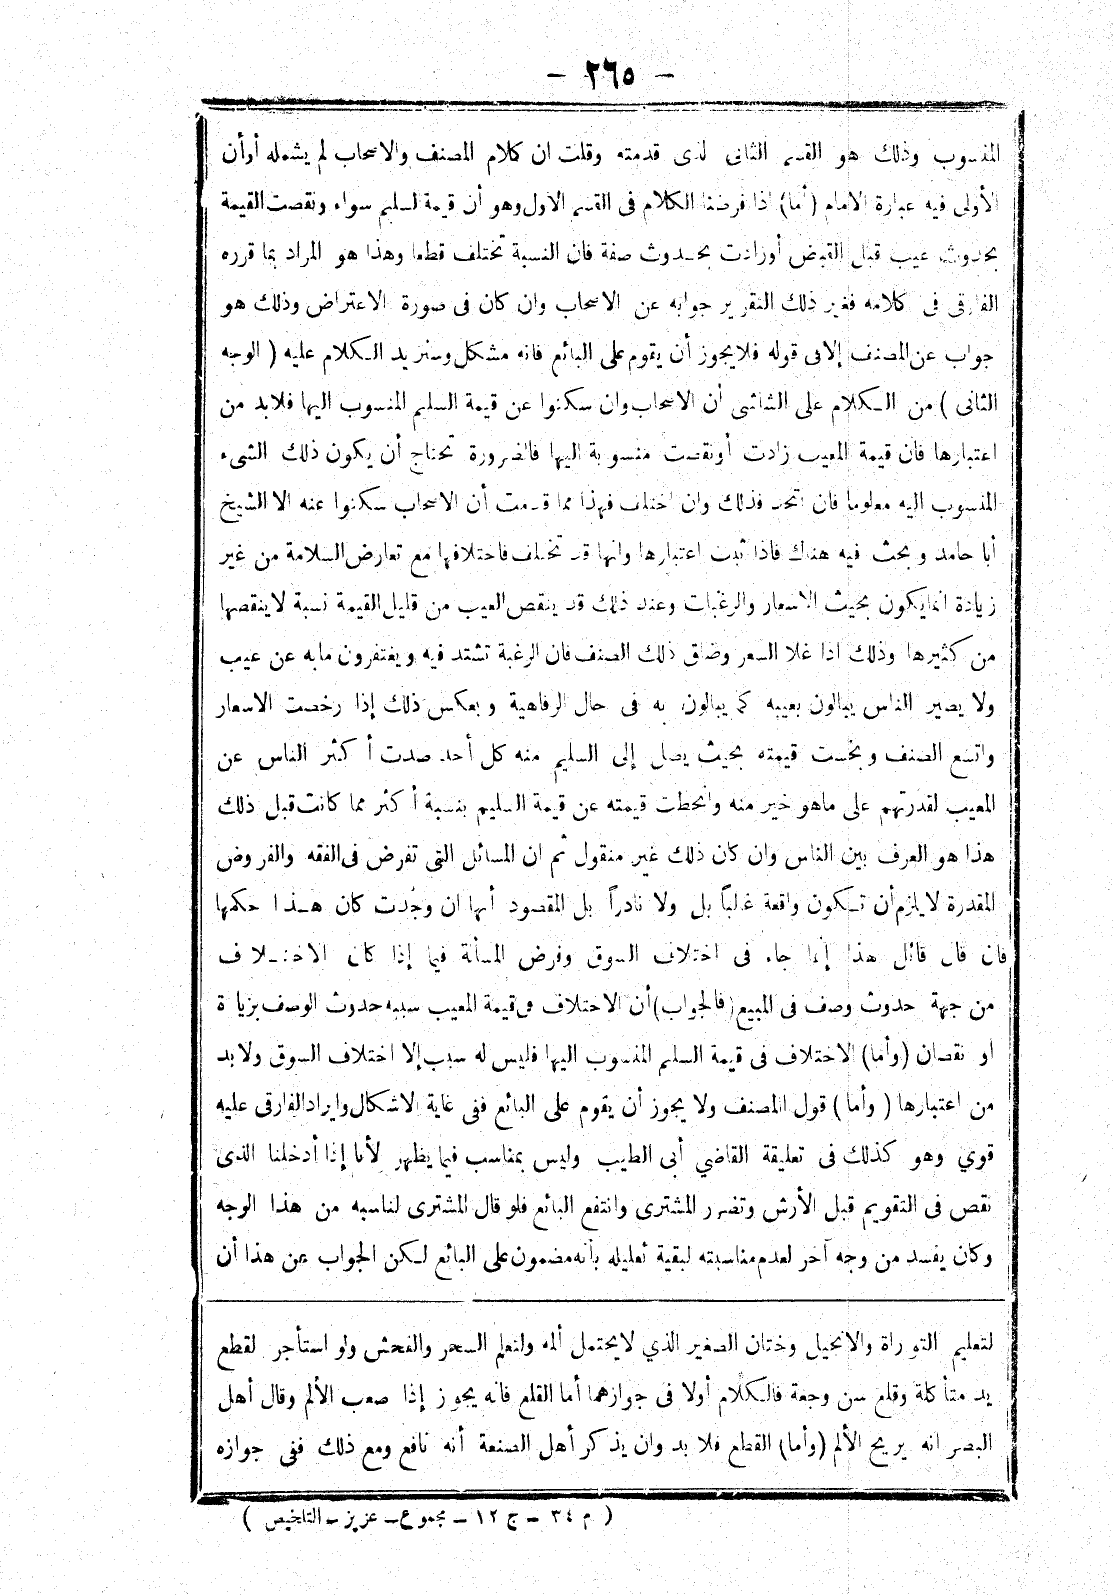 — ٢٦٥ —
المنسوب وذلك هو القسم الثانى لذى قدمته وقلت ان كلام المصنف والاصحاب لم يشمله أوأن
الأولى فيه عبارة الامام (أما) اذا فرضنا الكلام فى القسم الاول وهو أن قيمة السليم سواء ونقصت القيمة
بحدوث عيب قبل القبض أوزادت بحدوث صفة فان النسبة تختلف قطعا وهذا هو المراد بما قرره
الفارقى فى كلامه فغير ذلك التقرير جوابه عن الاصحاب وان كان فى صورة الاعتراض وذلك هو
جواب عن المصنف إلافى قوله فلايجوز أن يقوم على البائع فانه مشكل وسنزيد الكلام عليه ( الوجه
الثانى ) من الكلام على الشاشى أن الاصحاب وان سكتوا عن قيمة السليم المنسوب اليها فلابد من
اعتبارها فان قيمة المعيب زادت أونقصت منسوبة اليها فالضرورة تحتاج أن يكون ذلك الشىء
المنسوب اليه معلوما فان اتحد فذلك وان اختلف فهذا مما قدمت أن الاصحاب سكتوا عنه الا الشيخ
أبا حامد وبحث فيه هناك فاذا ثبت اعتبارها وانها قد تختلف فاختلافها مع تعارض السلامة من غير
زيادة انمايكون بحيث الاسعار والرغبات وعند ذلك قد ينقص العيب من قليل القيمة نسبة لاينقصها
من كثيرها وذلك اذا غلا السعر وضاق ذلك الصنف فان الرغبة تشتد فيه ويغتفرون مابه عن عيب
ولا يصير الناس يبالون بعيبه كما يبالون به فى حال الرفاهية وبعكس ذلك إذا رخصت الاسعار
واتسع الصنف وبخست قيمته بحيث يصل إلى السليم منه كل أحد صدت أكثر الناس عن
المعيب لقدرتهم على ماهو خير منه وانحطت قيمته عن قيمة السليم بنسبة أكثر مما كانت قبل ذلك
هذا هو العرف بين الناس وان كان ذلك غير منقول ثم ان المسائل التى تفرض فى الفقه والفروض
المقدرة لايلزم أن تكون واقعة غالباً بل ولا نادراً بل المقصود أنها ان وجدت كان هذا حكمها
فان قال قائل هذا إنما جاء فى اختلاف السوق وفرض المسألة فيما إذا كان الاختلاف
من جهة حدوث وصف فى المبيع (فالجواب) أن الاختلاف فى قيمة المعيب سببه حدوث الوصف بزيادة
او نقصان (وأما) الاختلاف فى قيمة السليم المنسوب اليها فليس له سبب إلا اختلاف السوق ولابد
من اعتبارها ( وأما ) قول المصنف ولا يجوز أن يقوم على البائع ففى غاية الاشكال وايراد الفارقى عليه
قوي وهو كذلك فى تعليقة القاضي أبى الطيب وليس بمناسب فيما يظهر لأنا إذا أدخلنا الذى
نقص فى التقويم قبل الأرش وتضرر المشترى وانتفع البائع فلو قال المشترى لناسبه من هذا الوجه
وكان يفسد من وجه آخر لعدم مناسبته لبقية تعليله بأنه مضمون على البائع لكن الجواب عن هذا أن
لتعليم التوراة والانجيل وختان الصغير الذي لايحتمل ألمه ولتعلم السحر والفحش ولو استأجر لقطع
يد متأكلة وقلع سن وجعة فالكلام أولا فى جوازهما أما القلع فانه يجوز إذا صعب الألم وقال أهل
البصر انه يريح الألم (وأما) القطع فلا بد وان يذكر أهل الصنعة أنه نافع ومع ذلك ففى جوازه
( م ٣٤ - ج ١٢ - مجموع - عزيز - التلخيص )